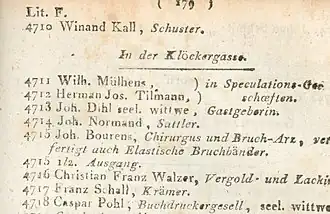 ( 179 )
Lit. F.
4710 Winand Kall, Schuster.
In der Klöckergasse.
4711 Wilh. Mülhens, ) in Speculations-Ge-
4712 Herman Jos. Tilmann, ) schæften.
4713 Joh. Dihl seel. wittwe, Gastgeberin.
4714 Joh. Normand, Sattler.
4715 Joh. Bourens, Chirurgus und Bruch-Arz, ver
fertigt auch Elastische Bruchbänder.
4715 1/2. Ausgang.
4716 Christian Franz Walzer, Vergold- und Lackir
4717 Franz Schall, Krämer.
4718 Caspar Pohl, Buchdruckergesell, seel. wittwe